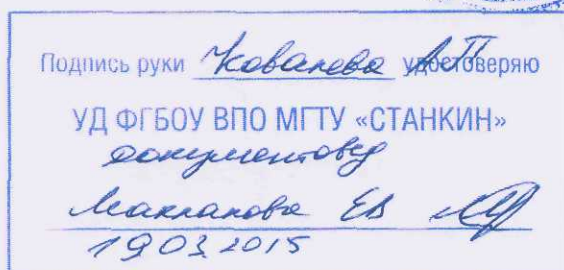 Подпись руки Ковалева А.П. удостоверяю
УД ФГБОУ ВПО МГТУ «СТАНКИН»
документовед
Макланова ЕВ
19 03 2015